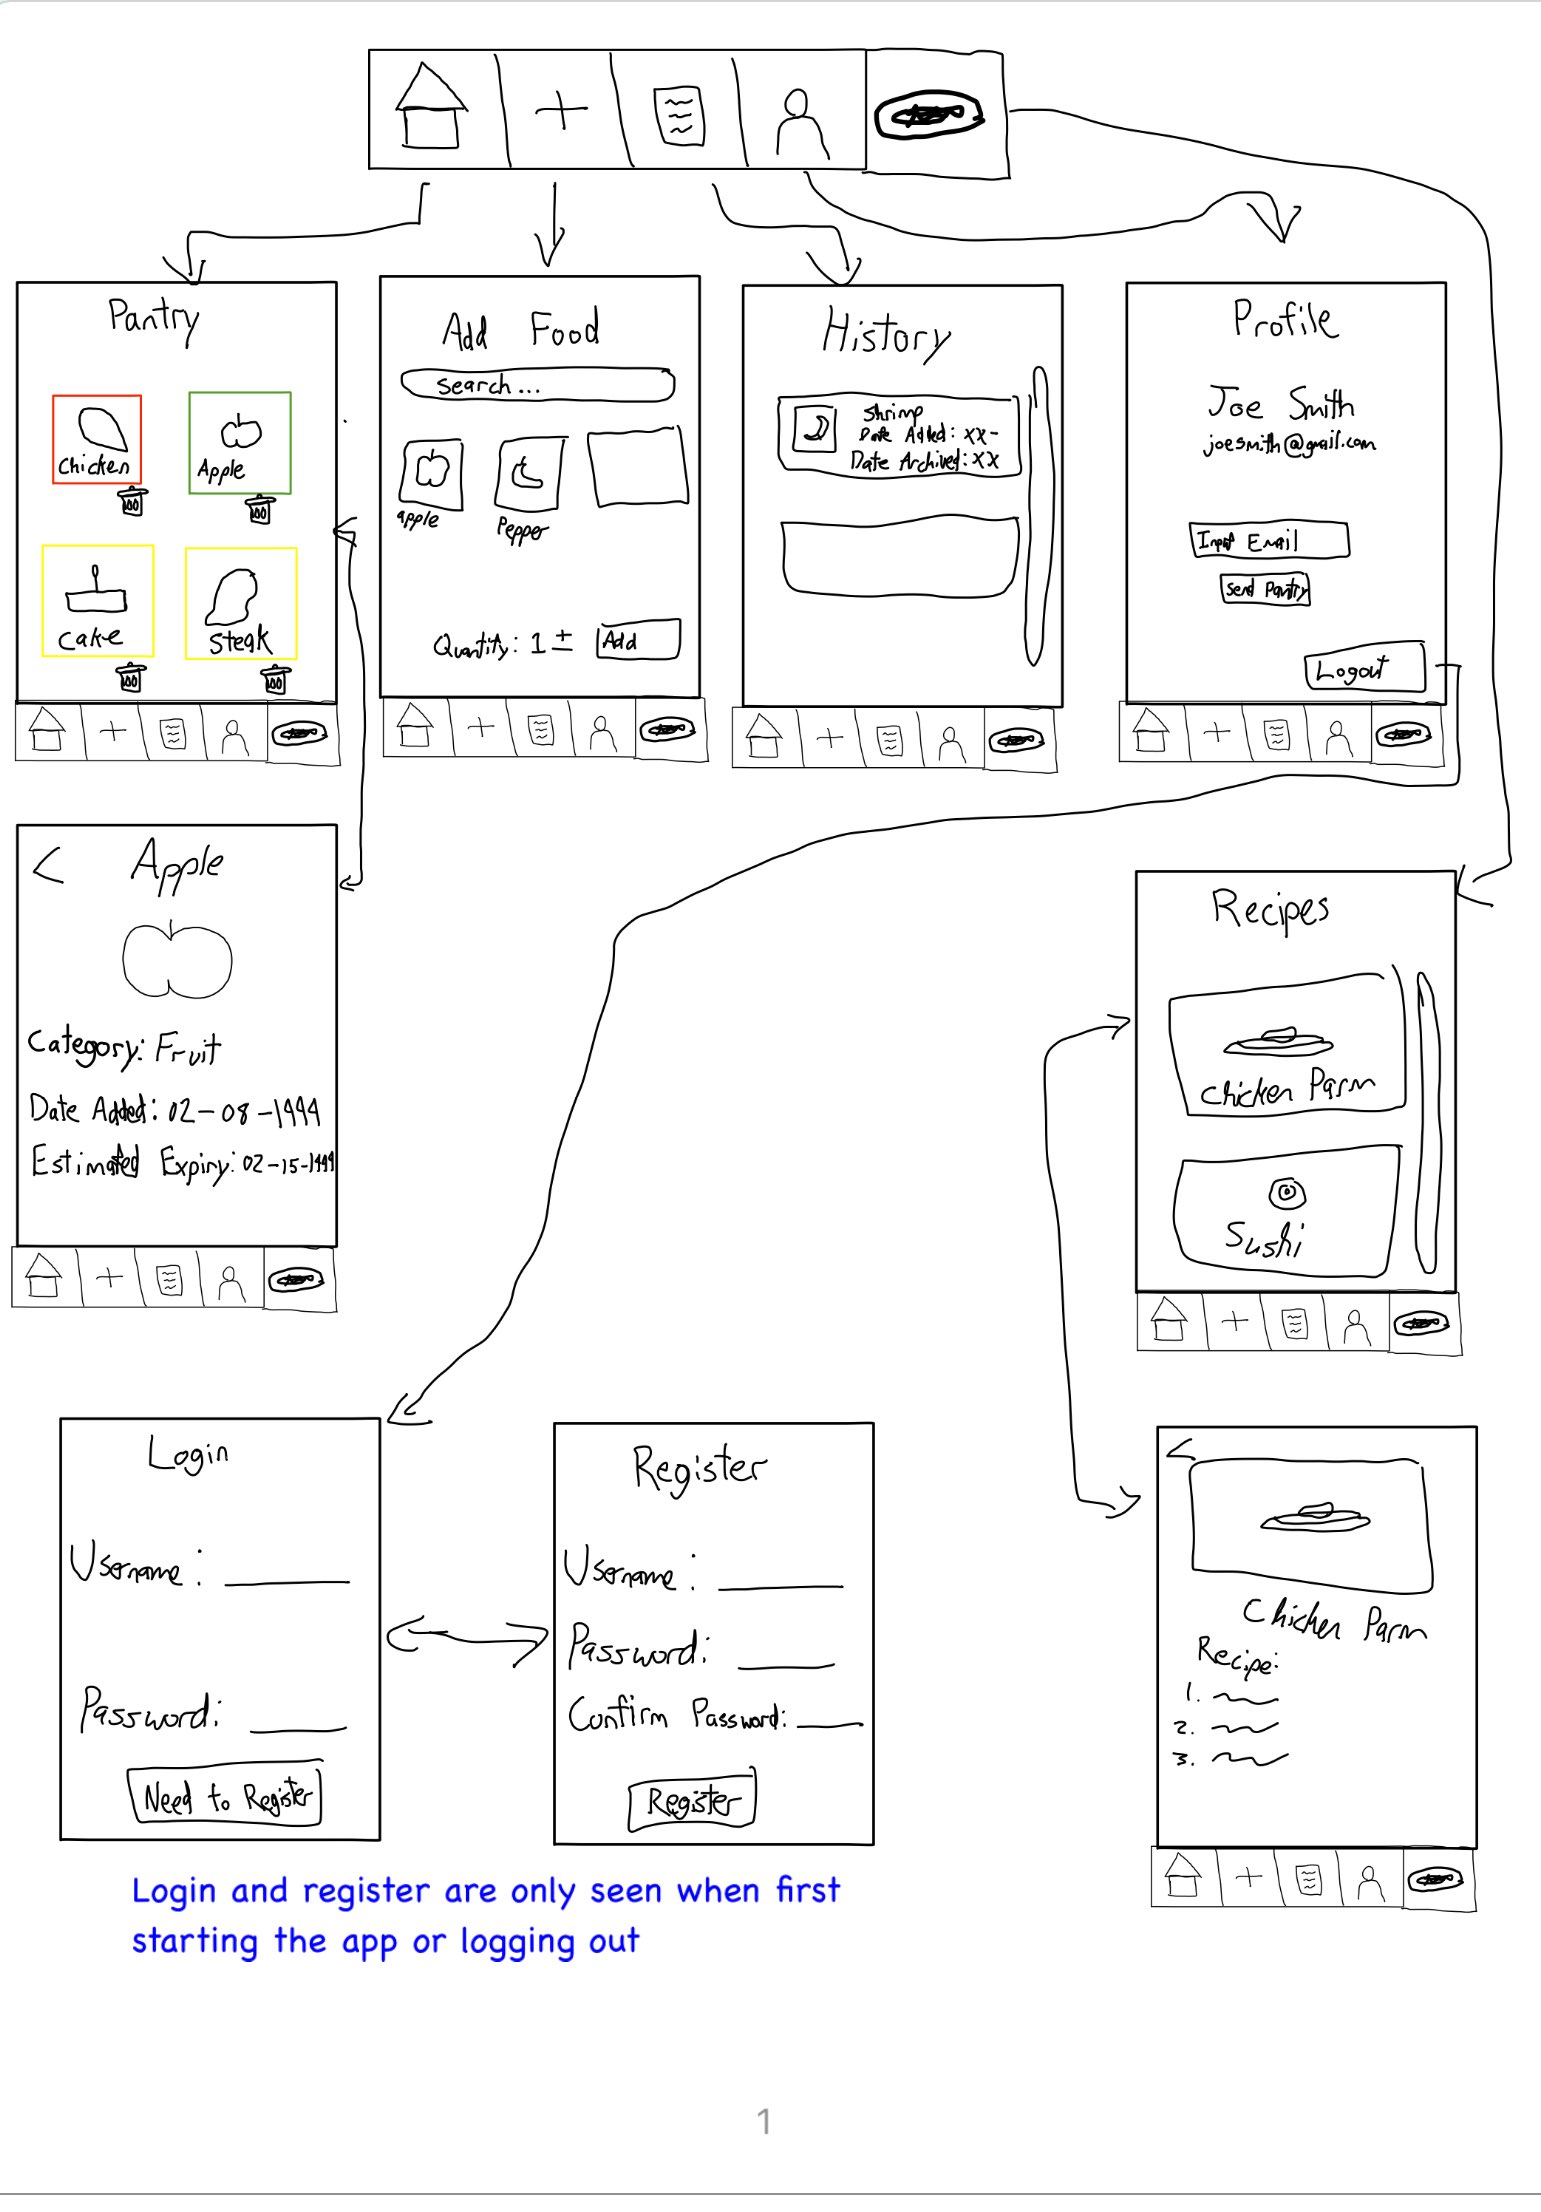 Pantry
Chicken
Apple
Cake
Steak
Add Food
Search...
apple
Pepper
Quantity: 1 ±
Add
History
Shrimp
Date Added: xx-
Date Archived: xx
Profile
Joe Smith
joesmith@gmail.com
Input Email
Send Pantry
Logout
< Apple
Category: Fruit
Date Added: 02-08-1999
Estimated Expiry: 02-15-1999
Recipes
Chicken Parm
Sushi
Login
Username:
Password:
Need to Register
Register
Username:
Password:
Confirm Password:
Register
<
Chicken Parm
Recipe:
1.
2.
3.
Login and register are only seen when first
starting the app or logging out
1